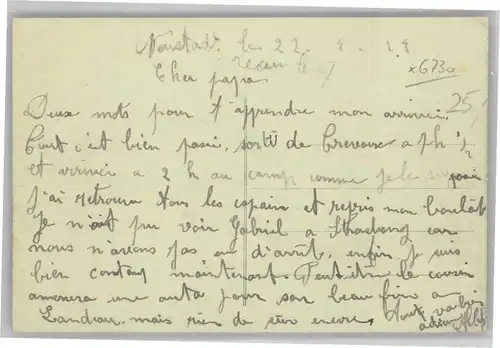 Neustadt le 22 . 8 . 28
reçu le 27
x 673a
Cher papa
25,
Deux mots pour t'apprendre mon arrivée.
Tout c'est bien passé, sorti de à 7h 1/2
et arrivée a 2 h au camp comme je le
j'ai retrouvé tous les copain et repris mon boulot
Je n'ait pu voir Gabriel a Strasbourg car
nous n'avons pas eu d'arrêt, enfin je suis
bien content maintenant. Peut être le cousin
amenera une auto pour son beau frère a
Landau, mais rien de sûr encore. Tout va bien
adieu